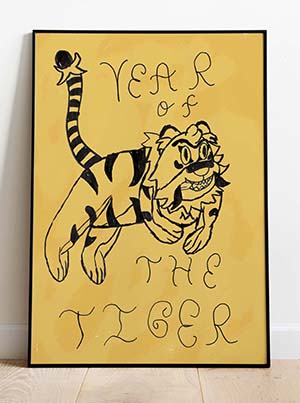 YEAR
OF
THE
TIGER